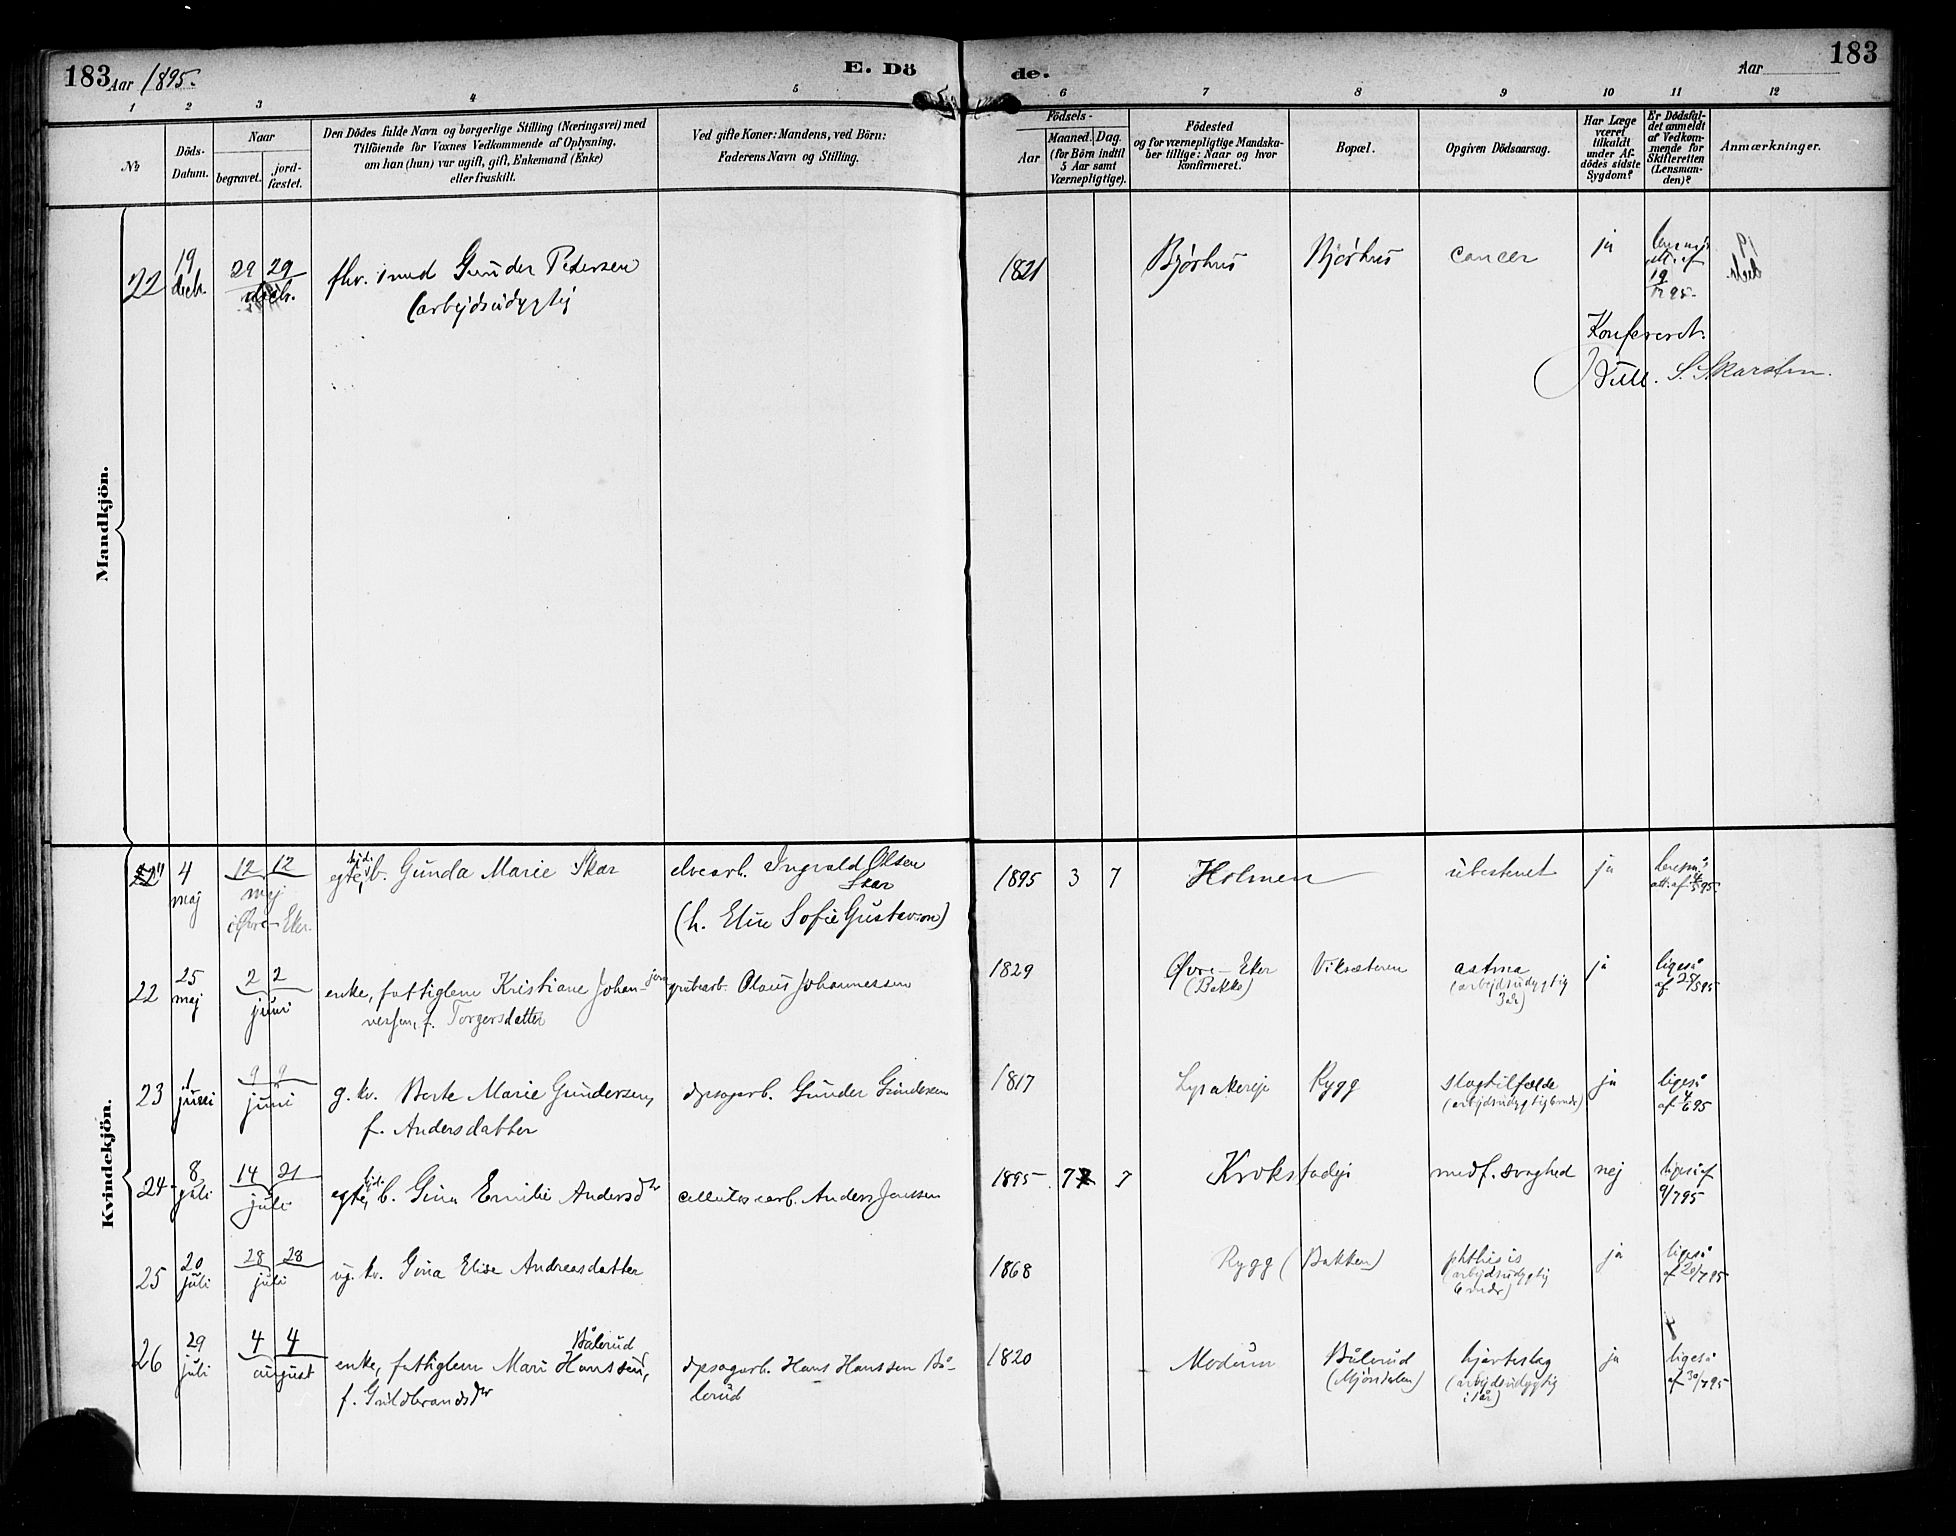 183 Aar 1895. E. Dö de. Aar 183
1 2 3 4 5 6 7 8 9 10 11 12
No.
Döds-
Datum.
Naar
begravet.
jord-
fæstet.
Den Dödes fulde Navn og borgerlige Stilling (Næringsvei) med
Tilföiende for Voxnes Vedkommende af Oplysning,
om han (hun) var ugift, gift, Enkemand (Enke)
eller fraskilt.
Ved gifte Koner: Mandens, ved Börn:
Faderens Navn og Stilling.
Födsels-
Aar
Maaned. Dag.
(for Börn indtil
5 Aar samt
Værnepligtige).
Födested
og for værnepligtige Mandska-
ber tillige: Naar og hvor
konfirmeret.
Bopæl.
Opgiven Dödsaarsag.
Har Læge
været
tilkaldt
under Af-
dödes sidste
Sygdom?
Er Dödsfal-
det anmeldt
af Vedkom-
mende for
Skifteretten
(Lensman-
den)?
Anmærkninger.
Mandkjön.
22 19 decb. 29 29 decb.
fhv. smed Gunder Pedersen
(arbejdsudygtig
1821 Bjørhus Bjørhus cancer ja
att. af
19
12 95.
Konfereret.
S. Skarsten.
Kvindekjön.
21 4 maj 12 12 maj
i Øvre-Eker.
egtef. b. Gunda Marie Skar
elvearb. Ingvald Olsen
Skar
(h. Elise Sofie Gustavson)
1895 3 7 Holmen ubestemt ja
att. af 4/5 95.
22 25 maj 2 2 juni
enke, fattiglem Kristiane Johan-
nessen, f. Torgersdatter
grubearb. Olaus Johannessen
1829 Øvre-Eker
(Bakke)
Viksæteren
astma
(arbejdsudygtig
3 år)
ja
ligeså
af 25/5 95
23 1 juni 9 9 juni
g. kv. Berte Marie Gundersen,
f. Andersdatter
dpsagarb. Gunder Gundersen
1817 Lysakereje Rygg
slagtilfælde
ja
ligeså
af 4/6 95
24 8 juli 14 21 juli
egtef. b. Gina Emilie Andersdtr
cellulosearb. Anders Jenssen
1895 7 7 Krokstadeje medf. svaghed nej
ligeså af
9/7 95
25 20 juli 28 28 juli
ug. kv. Gina Elise Andreasdatter
1868 Rygg (Bakken)
phthisis
(arbejdsudygtig
6 mdr)
ja
ligeså
af 20/7 95
26 29 juli 4 4 august
Bålerud
enke, fattiglem Mari Hanssen,
f. Guldbrandsdtr
dpsagarb. Hans Hanssen Bå-
lerud
1820 Modum
Bålerud
(Mjøndalen)
hjerteslag
(arbejdsudygtig
i 1 år)
ja
ligeså
af 30/7 95